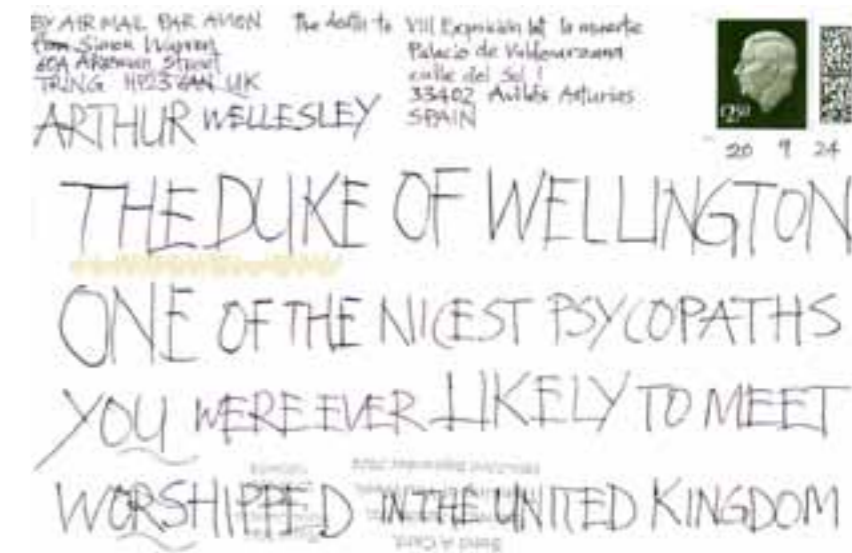 BY AIR MAIL PAR AVION
from Simon Warren
60A Akeman Street
TRING HP23 6AN UK
The death to VIII Exposición la muerte
Palacio de Valdecarzana
calle del Sol 1
33402 Avilés Asturias
SPAIN
£2.50
20 9 24
ARTHUR WELLESLEY
THE DUKE OF WELLINGTON
ONE OF THE NICEST PSYCOPATHS
YOU WERE EVER LIKELY TO MEET
WORSHIPPED IN THE UNITED KINGDOM
Send A Card